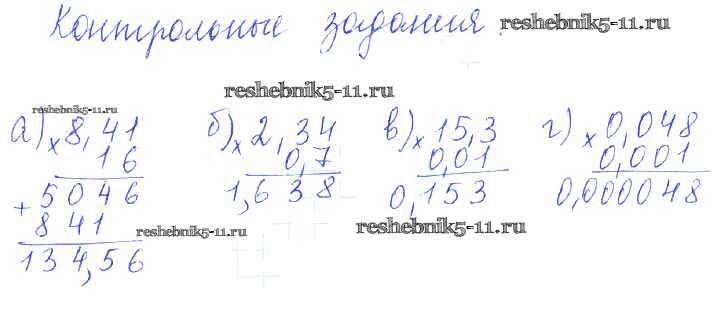 Контрольные задания. reshebnik5-11.ru
reshebnik5-11.ru
reshebnik5-11.ru
а) × 8,41 б) × 2,34 в) × 15,3 г) × 0,048
16 0,7 0,01 0,001
+ 5046 1,638 0,153 0,000048
841 reshebnik5-11.ru reshebnik5-11.ru
134,56